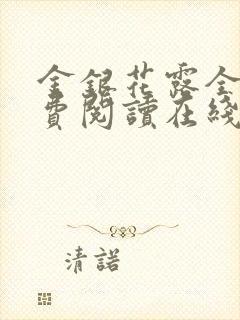 金銀花露全
費閱讀在綫
清諾